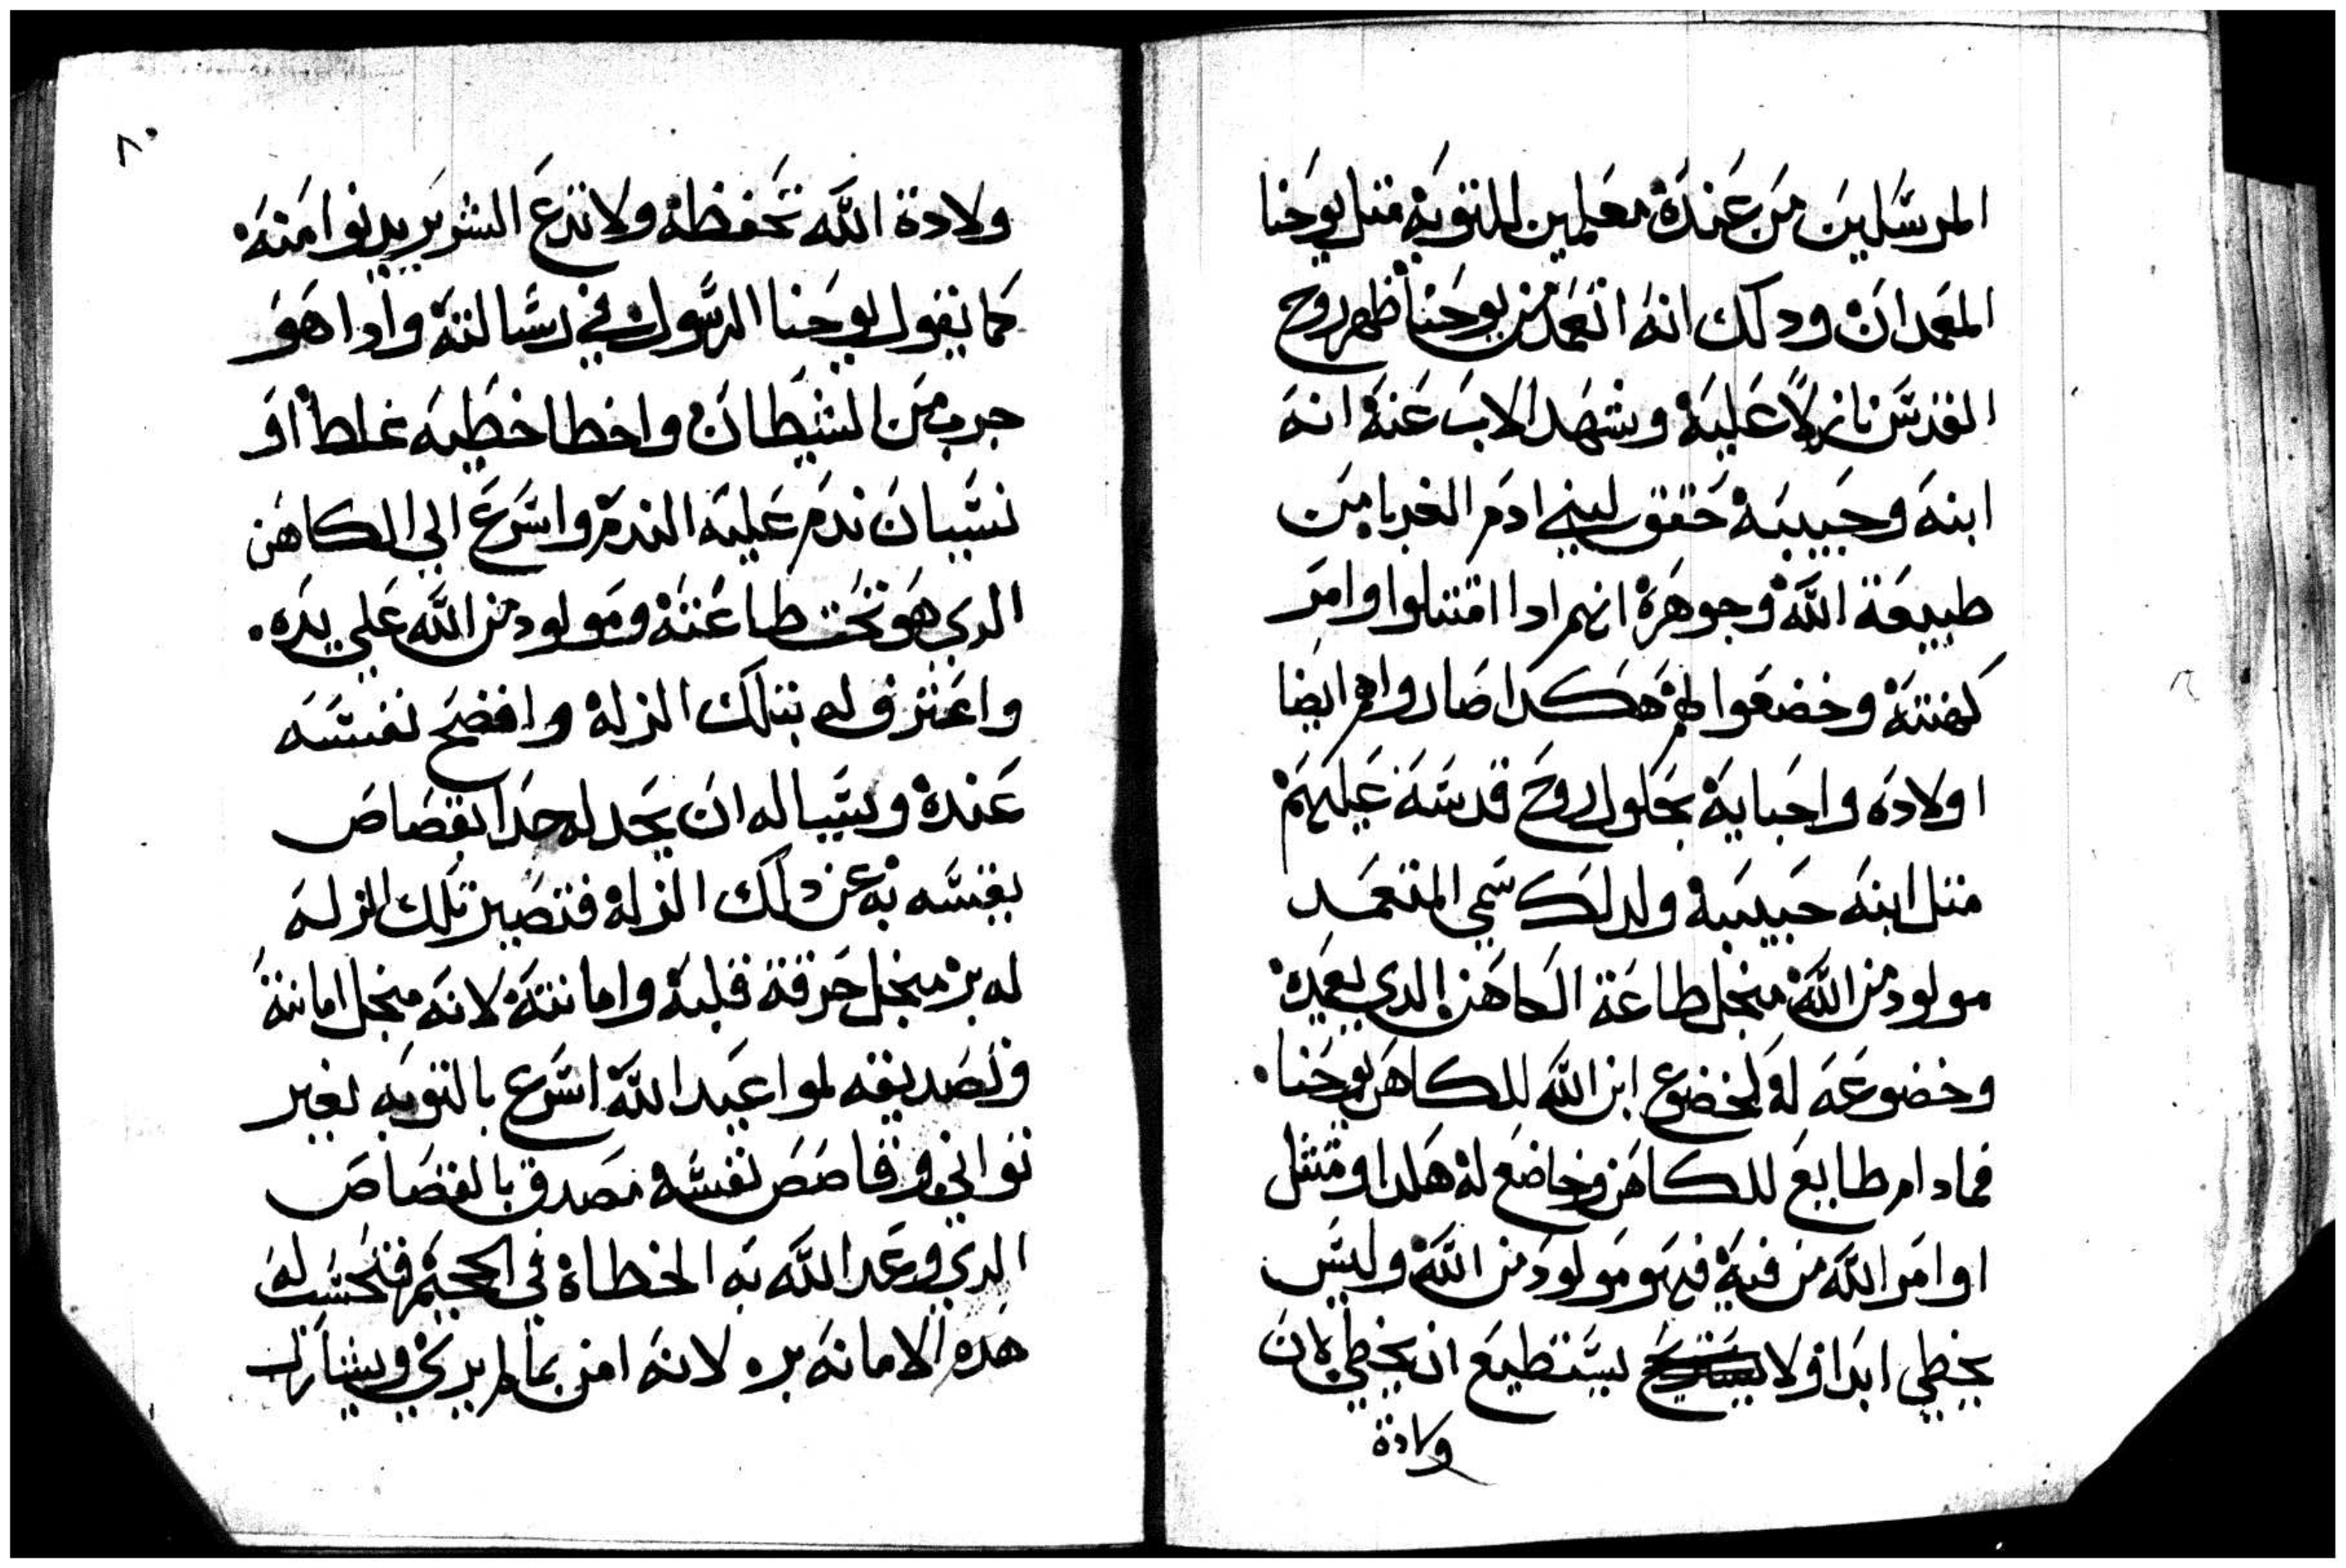 المرسلين من عنده معلمين للتوبه متل يوحنا
المعمدان ودلك انه اتعمد من يوحنا ظهر روح
القدس نازلاً عليه وشهد الاب عنه انه
ابنه وحبيبه حقق لبني ادم الغربا من
طبيعة الله وجوهره انهم ادا امتتلوا وامر
كهنته وخضعوا لهم هكدا صاروا هم ايضا
اولاده واحبايه بحلول روح قدسه عليهم
متل ابنه حبيبه ولدلك سمي المتعمد
مولود من الله منجل طاعة الكاهن الدي يعمده
وخضوعه له كخضوع ابن الله للكاهن يوحنا
فمادام طايع للكاهن وخاضع له هكدا ومتتل
اوامر الله من فيه فهو مولود من الله وليس
يخطي ابدا ولا يستطيع ان يخطي لان
ولادة
٨٠
ولادة الله تحفظه ولا تدع الشرير يدنوا منه
كما يقول يوحنا الرسول في رسالته وادا هو
جرب من الشيطان واخطا خطيه غلط او
نسيان ندم عليه الندم واسرع الي الكاهن
الدي هو تحت طاعته ومولود من الله علي يده
واعترف له بتلك الزله وافضح نفسه
عنده ويسياله ان يحد له حدا بقصاص
يقتسه به عن دلك الزله فتصير تلك الزله
له بر منجل حرقة قلبه وامانته لانه منجل امانته
وتصديقه لمواعيد الله اسرع بالتوبه بغير
تواني وقاصص نفسه مصدق بالقصاص
الدي وعد الله به الخطاة في الجحيم فتحسب له
هده الامانه بره لانه امن بما لم يري ويشارك